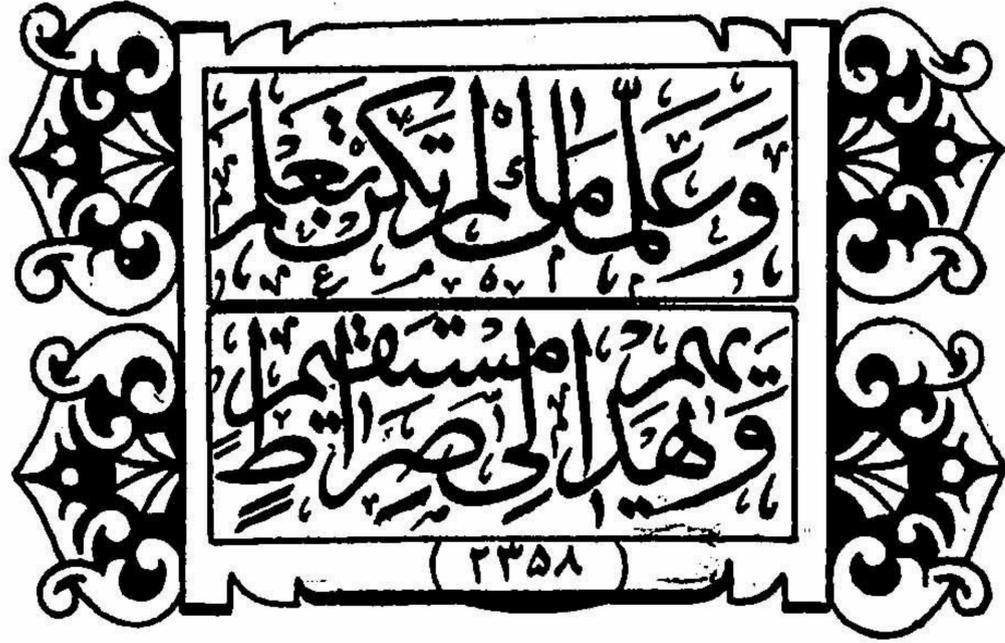 وعلمك ما لم تكن تعلم
ويهديهم الى صراط مستقيم
۲۳۵۸